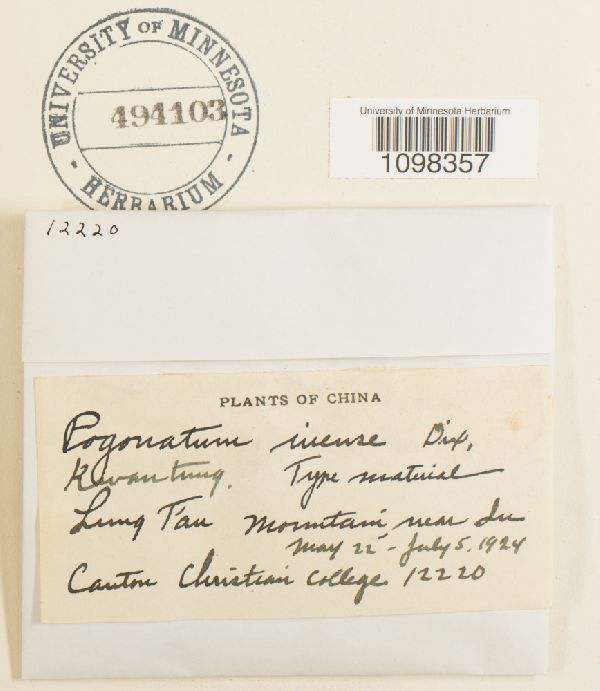 UNIVERSITY OF MINNESOTA
494103
- HERBARIUM -
University of Minnesota Herbarium
1098357
12220
PLANTS OF CHINA
Pogonatum iuense Dix,
Kwantung. Type material
Lung T'au Mountain near Iu
May 22 - July 5, 1924
Canton Christian College 12220